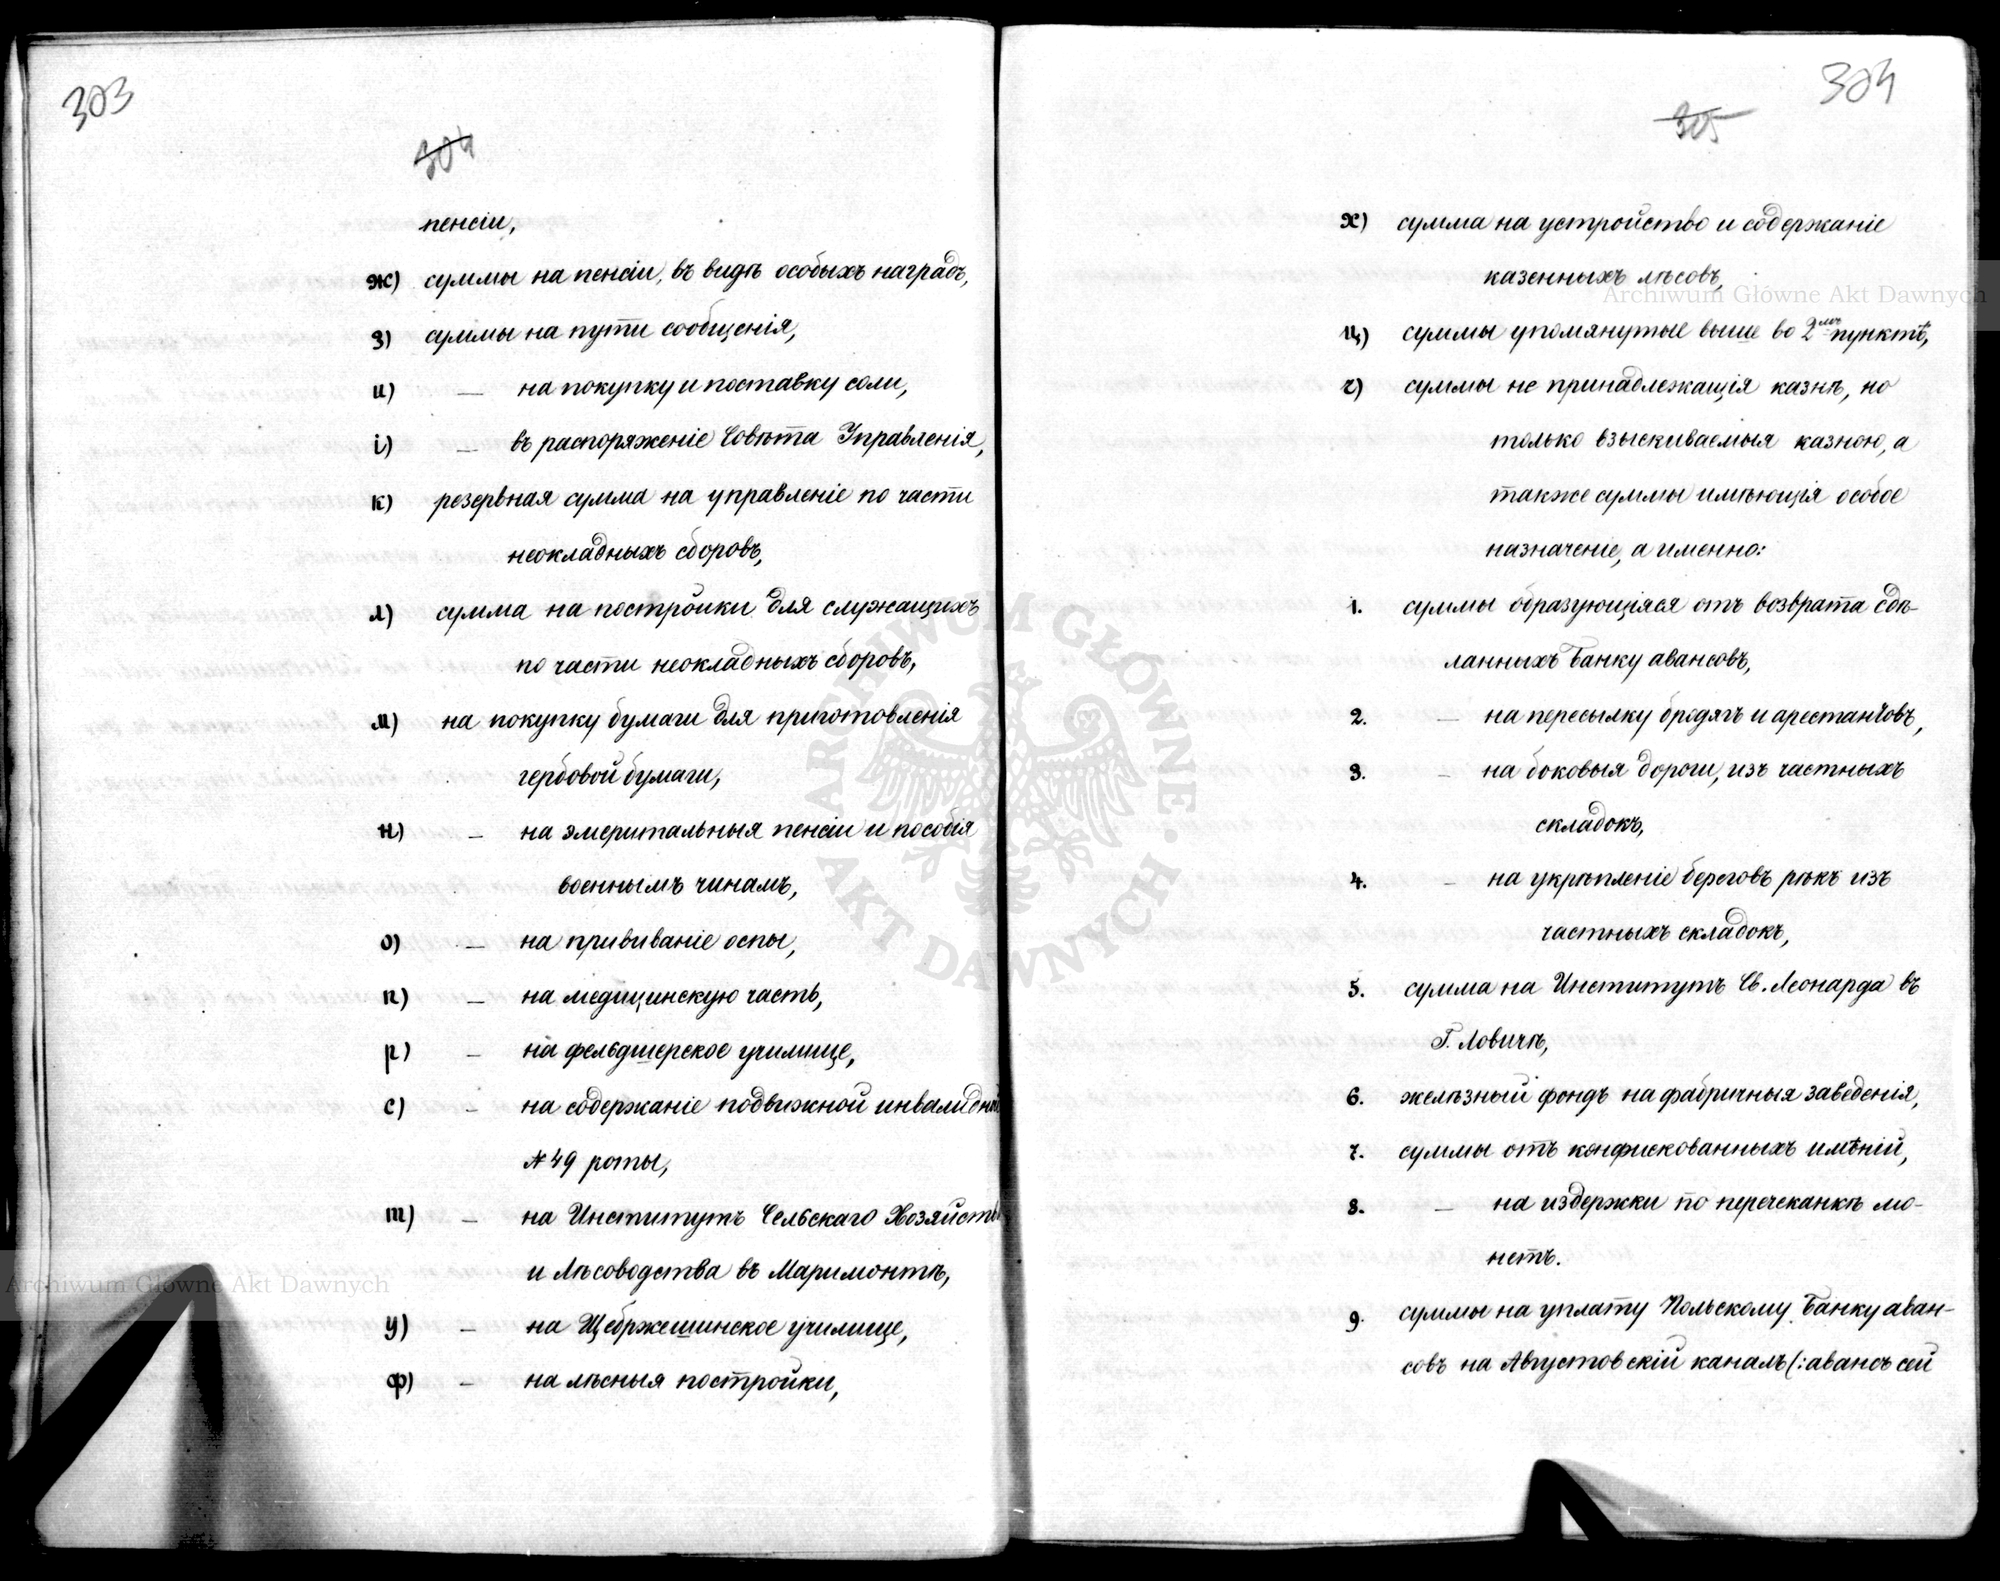 303
304
пенсіи,
ж) суммы на пенсіи, въ видѣ особыхъ наградъ,
з) суммы на пути сообщенія,
и) — на покупку и поставку соли,
і) — въ распоряженіе Совѣта Управленія,
к) резервная сумма на управленіе по части
неокладныхъ сборовъ,
л) сумма на постройки для служащихъ
по части неокладныхъ сборовъ,
м) на покупку бумаги для приготовленія
гербовой бумаги,
н) — на эмеритальныя пенсіи и пособія
военнымъ чинамъ,
о) — на прививаніе оспы,
п) — на медицинскую часть,
р) — на фельдшерское училище,
с) — на содержаніе подвижной инвалидной
№ 49 роты,
т) — на Институтъ Сельскаго Хозяйства
и Лѣсоводства въ Маримонтѣ,
у) — на Щебржешинское училище,
ф) — на лѣсныя постройки,
304
305
х) сумма на устройство и содержаніе
казенныхъ лѣсовъ,
ц) суммы упомянутые выше во 2мъ пунктѣ,
ч) суммы не принадлежащія казнѣ, но
только взыскиваемыя казною, а
также суммы имѣющія особое
назначеніе, а именно:
1. суммы образующіяся отъ возврата сдѣ-
ланныхъ Банку авансовъ,
2. — на пересылку бродягъ и арестантовъ,
3. — на боковыя дороги, изъ частныхъ
складокъ,
4. — на укрѣпленіе береговъ рѣкъ изъ
частныхъ складокъ,
5. сумма на Институтъ Св. Леонарда въ
Г. Ловичѣ,
6. желѣзный фондъ на фабричныя заведенія,
7. суммы отъ конфискованныхъ имѣній,
8. — на издержки по перечеканкѣ мо-
нетъ.
9. суммы на уплату Польскому Банку аван-
совъ на Августовскій каналъ (: авансъ сей
Archiwum Główne Akt Dawnych
Archiwum Główne Akt Dawnych
ARCHIWUM GŁÓWNE AKT DAWNYCH